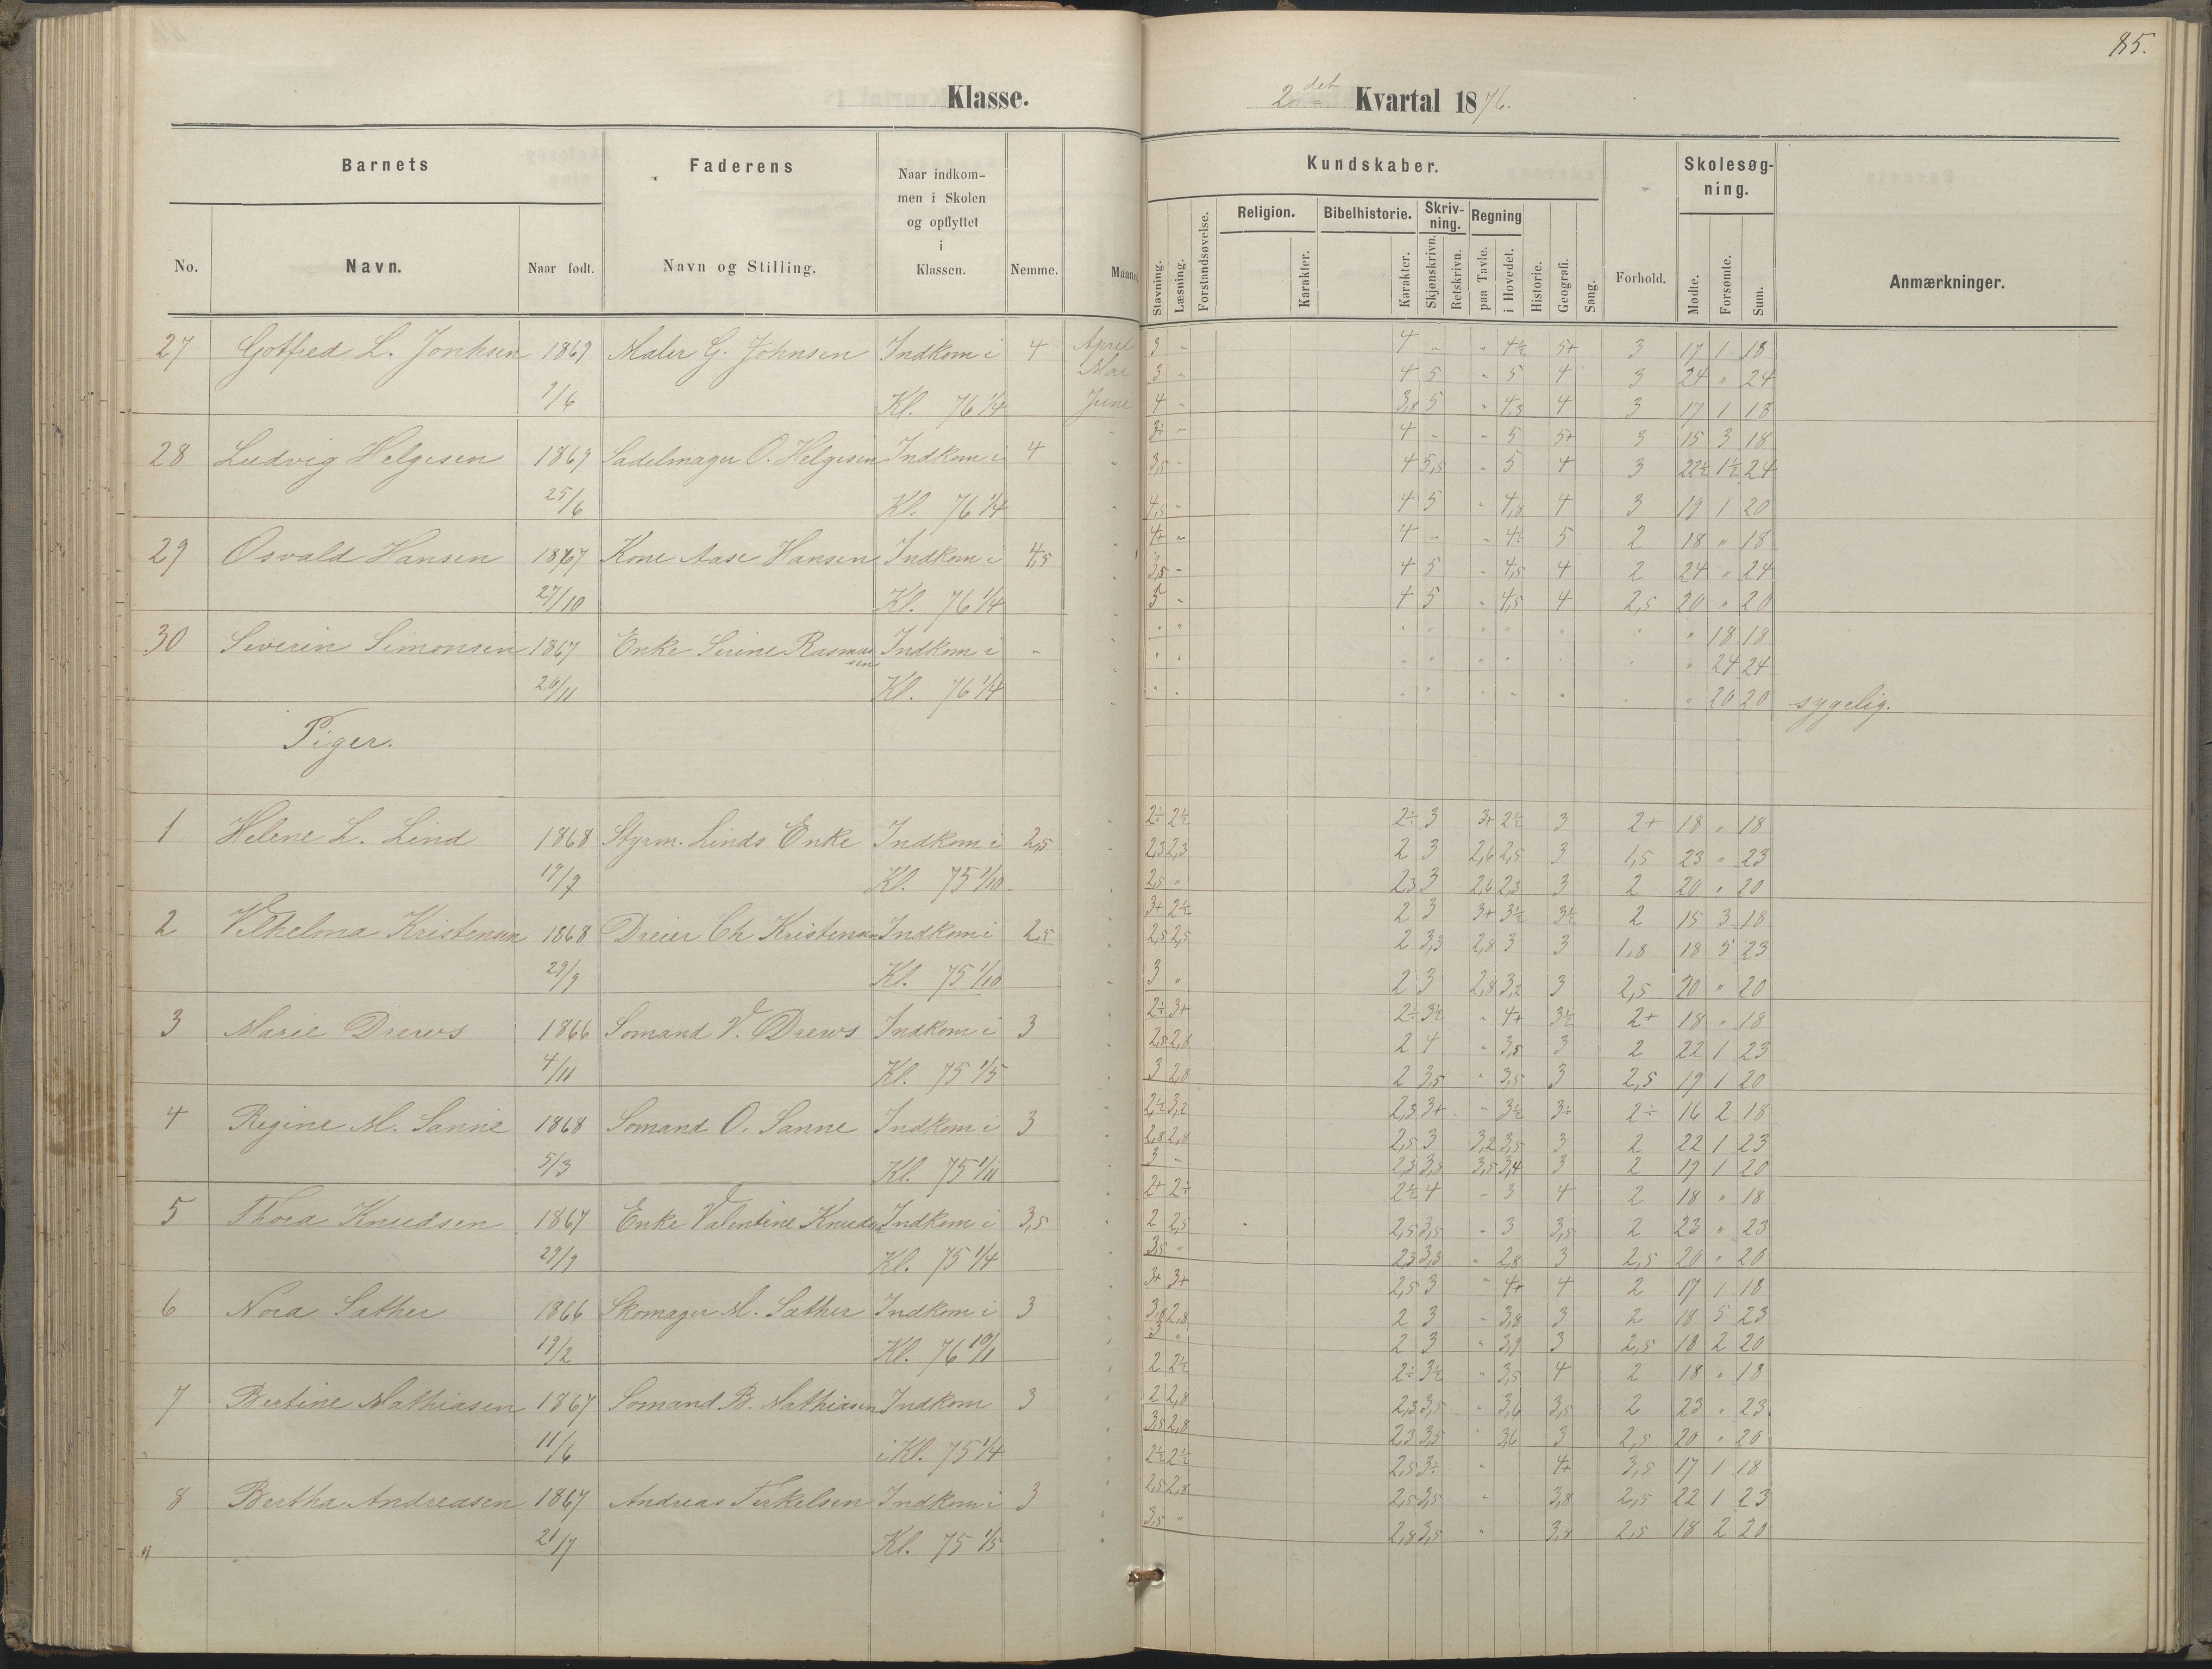 85.
Klasse.
2det Kvartal 1876.
Barnets
Faderens
Naar indkom-
men i Skolen
og opflyttet
i
Klassen.
No.
Navn.
Naar født.
Navn og Stilling.
Nemme.
Kundskaber.
Skolesøg-
ning.
Stavning.
Læsning.
Forstandsøvelse.
Religion.
Karakter.
Bibelhistorie.
Karakter.
Skriv-
ning.
Skjønskrivn.
Retskrivn.
Regning
paa Tavle.
i Hovedet.
Historie.
Geografi.
Sang.
Forhold.
Mødte.
Forsømte.
Sum.
Anmærkninger.
27 Gotfred L. Jonhsen 1867 Maler G. Johnsen Indkom i 4 April 3 - 4 - - 4½ 5+ 3 17 1 18
Mai 3 - 4 5 - 5 4 3 24 " 24
1/6 Kl. 76 1/4 Juni 4 - 3,8 5 - 4,3 4 3 17 1 18
3÷ - 4 - - 5 5+ 3 15 3 18
28 Ludvig Helgesen 1869 Sadelmager O. Helgesen Indkom i 4 3,5 - 4 5,5 - 5 4 3 22½ 1½ 24
25/6 Kl. 76 1/4 4,5 - 4 5 - 4,8 4 3 19 1 20
4+ - 4 - - 4÷ 5 2 18 " 18
29 Osvald Hansen 1867 Kone Aase Hansen Indkom i 4,5 3,5 - 4 5 - 4,5 4 2 24 " 24
27/10 Kl. 76 1/4 5 - 4 5 - 4,5 4 2,5 20 " 20
" 18 18
30 Severin Simonsen 1867 Enke Serine Rasmussen Indkom i - " 24 24
20/11 Kl. 76 1/4 " 20 20 sygelig.
Piger.
2÷ 2½ 2÷ 3 3+ 2½ 3 2+ 18 " 18
1 Helene L. Lind 1868 Styrm. Linds Enke Indkom i 2,5 2,3 2,3 2 3 2,6 2,5 3 1,5 23 " 23
19/7 Kl. 75 1/10 2,5 " 2,3 3 2,6 2,3 3 2 20 " 20
3+ 2½ 2 3 3+ 3½ 3½ 2 15 3 18
2 Vilhelma Kristensen 1868 Dreier Ch Kristensen Indkom i 2,5 2,5 2,5 2 3,3 2,8 3 3 1,8 18 5 23
29/9 Kl. 75 1/10 3 " 2 3 2,8 3,2 3 2,5 20 " 20
2÷ 3+ 2÷ 3½ " 4+ 3½ 2+ 18 " 18
3 Marie Drews 1866 Somand V. Drews Indkom i 3 2,5 2,8 2 4 - 3,5 3 2 22 1 23
4/11 Kl. 75 1/5 3 2,8 2 3,5 " 3,5 3 2,5 19 1 20
2½ 3,2 2,3 3+ - 3½ 3÷ 2÷ 16 2 18
4 Regine M. Sanne 1868 Somand O. Sanne Indkom i 3 2,8 2,8 2,5 3 3,2 3,5 3 2 22 1 23
5/3 Kl. 75 1/11 3 - 2,3 3,3 3,5 3,4 3 2 19 1 20
2+ 2÷ 2½ 4 - 3 4 2 18 " 18
5 Thora Knudsen 1867 Enke Valentine Knudsen Indkom i 3,5 2 2,5 2,5 3,5 - 3 3,5 2 23 " 23
29/9 Kl. 75 1/4 3,5 " 2,3 3,3 " 2,8 3 2,5 20 " 20
3+ 3+ 2,5 3 " 4+ 4 2 17 1 18
6 Nora Sather 1866 Skomager M. Sather Indkom i 3 3,8 2,8 2 3 " 3,8 3 2 18 5 23
19/2 Kl. 76 10/1 3 " 2 3 " 3,9 3 2,5 18 2 20
2 2½ 2÷ 3½ " 3,5 4 2 18 " 18
7 Bertine Mathiasen 1867 Somand B. Mathiasen Indkom 3 2 2,8 2,3 3,5 " 3,6 3,5 2 23 " 23
11/6 i Kl. 75 1/4 3,5 2,8 2,3 3,5 " 3,6 3 2,5 20 " 20
2½ 2½ 2,5 3÷ " 4+ 3,5 17 1 18
8 Bertha Andreasen 1867 Andreas Terkelsen Indkom i 3 2,5 2,8 2,5 3,5 " 3,8 2,5 22 1 23
21/7 Kl. 75 1/5 3,5 " 2,8 3,5 " 3,8 2,5 18 2 20